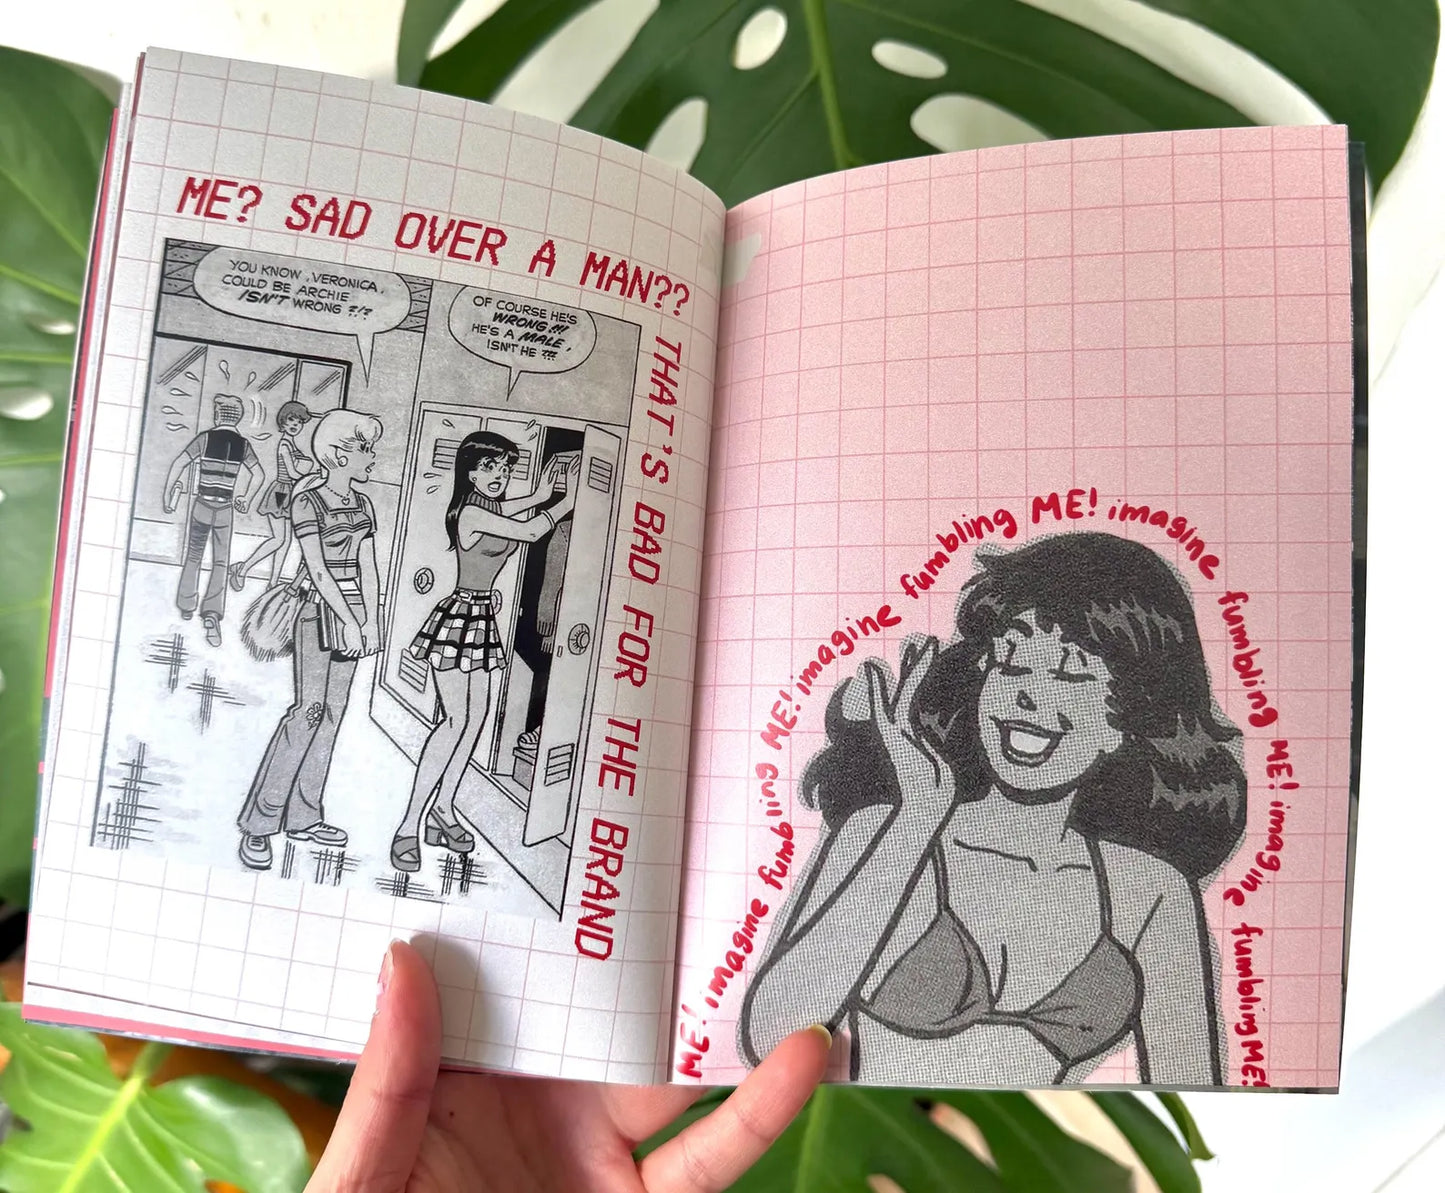 ME? SAD OVER A MAN??
THAT'S BAD FOR THE BRAND
YOU KNOW, VERONICA,
COULD BE ARCHIE
ISN'T WRONG ?!?
OF COURSE HE'S
WRONG!!!
HE'S A MALE,
ISN'T HE ???
ME! imagine fumbling ME! imagine fumbling ME! imagine fumbling ME! imagine fumbling ME!